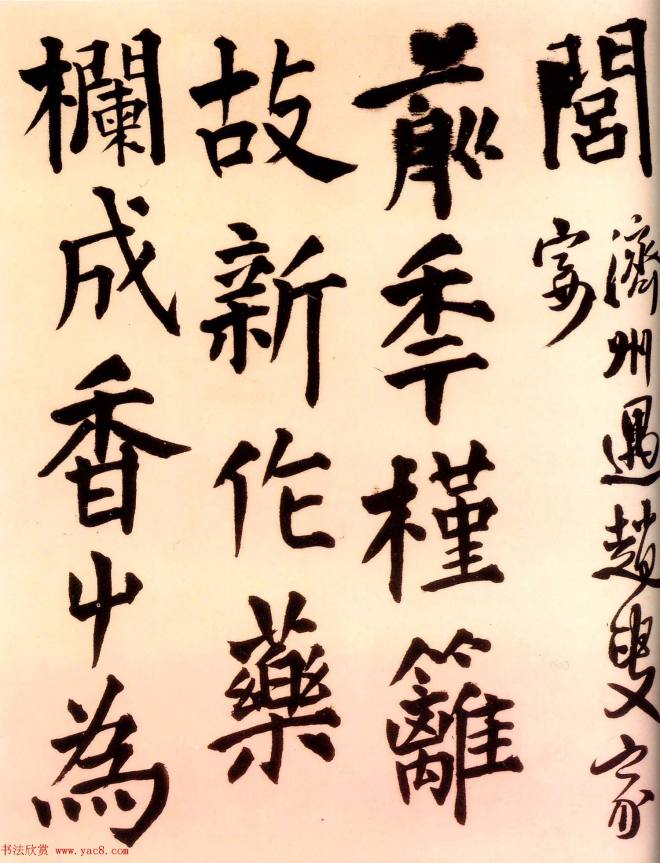 閭 濟州過趙叟家
宴
前秊槿籬
故新作藥
欄成香屮為
书法欣赏 www.yac8.com